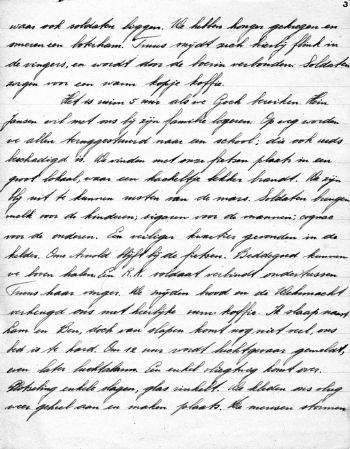 3
waar ook soldaten liggen. We hebben honger gekregen en
smeren een boterham. Truus snijdt zich hierbij flink in
de vingers, en wordt door de boerin verbonden. Soldaten
zorgen voor een warm kopje koffie.
Het is ruim 5 uur als we Goch bereiken. Hein
Jansen wil met ons bij zijn familie logeren. Op weg worden
we allen teruggestuurd naar een school; die ook reeds
beschadigd is. We vinden met onze fietsen plaats in een
groot lokaal, waar een kacheltje lekker brandt. We zijn
blij uit te kunnen rusten van de mars. Soldaten brengen
melk voor de kinderen; sigaren voor de mannen; cognac
voor de ouderen. Een veiliger kwartier gevonden in de
kelder. Ome Arnold blijft bij de fietsen. Beddegoed kunnen
we boven halen. Een R.K. soldaat verbindt ondertussen
Truus haar vinger. We snijden brood en de Wehrmacht
verheugd ons met heerlijke warme koffie. Ik slaap naast
en Ben, doch van slapen komt nog niet veel, ons
bed is te hard. Om 12 uur wordt luchtgevaar gemeld,
even later luchtalarm. Een enkel vliegtuig komt over.
Plotseling enkele slagen, glas rinkelt. We kleden ons vlug
weer geheel aan en maken plaats. De mensen stromen